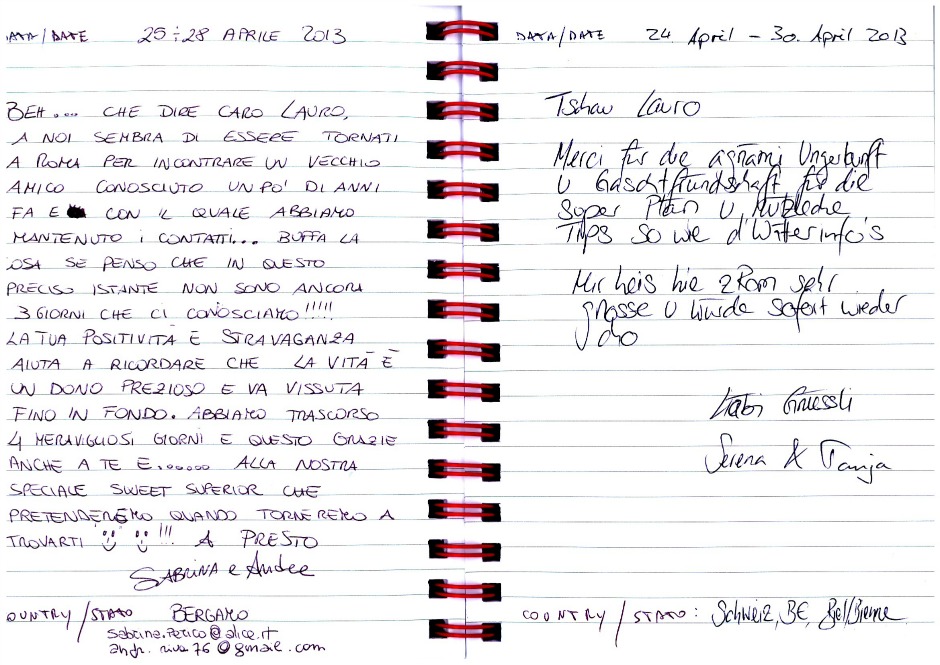 DATA/DATE 25÷28 APRILE 2013
BEH.... CHE DIRE CARO LAURO,
A NOI SEMBRA DI ESSERE TORNATI
A ROMA PER INCONTRARE UN VECCHIO
AMICO CONOSCIUTO UN PO' DI ANNI
FA E CON IL QUALE ABBIAMO
MANTENUTO i CONTATTI... BUFFA LA
OSA SE PENSO CHE IN QUESTO
PRECISO ISTANTE NON SONO ANCORA
3 GIORNI CHE CI CONOSCIAMO!!!!!
LA TUA POSITIVITÀ E STRAVAGANZA
AIUTA A RICORDARE CHE LA VITÀ È
UN DONO PREZIOSO E VA VISSUTA
FINO IN FONDO. ABBIAMO TRASCORSO
4 MERAVIGLIOSI GIORNI E QUESTO GRAZIE
ANCHE A TE E....... ALLA NOSTRA
SPECIALE SWEET SUPERIOR CHE
PRETENDEREMO QUANDO TORNEREMO A
TROVARTI !!! A PRESTO
SABRINA e Andrea
OUNTRY/STATO BERGAMO
sabrina.perico@alice.it
andr.riva76@gmail.com
DATA/DATE 24. April - 30. April 2013
Tschau Lauro
Merci für die Ungerkunft
U für die
Super Plän U
Tips so wie d'Wätterinfo's
Mir heis hie z Rom sehr
gnosse u würde sofort wieder
cho
Liäbi Grüessli
Serena & Tanja
COUNTRY/STATO: Schweiz, BE, Biel/Bienne